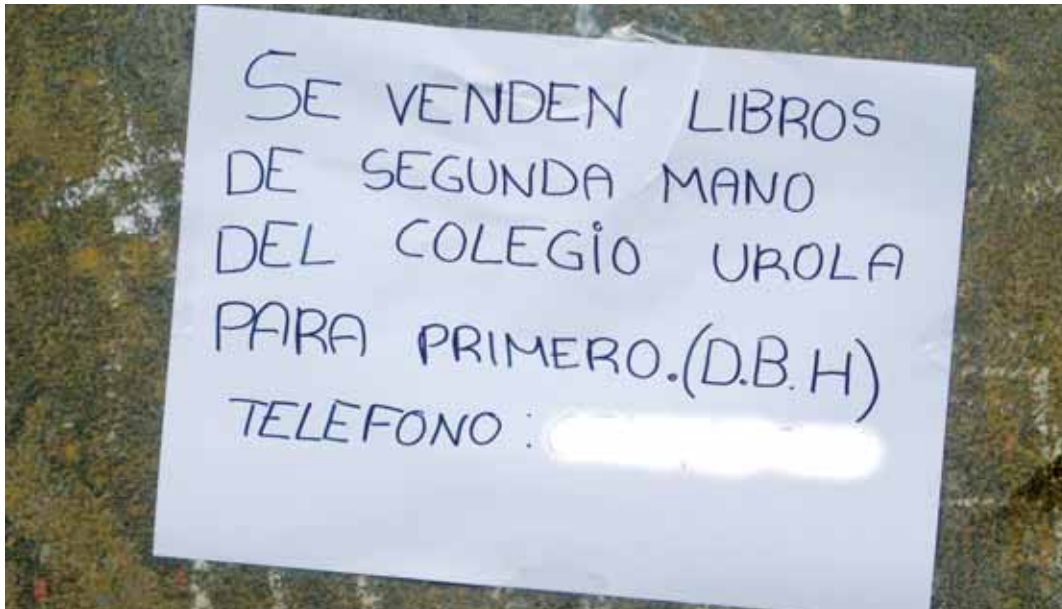 SE VENDEN LIBROS
DE SEGUNDA MANO
DEL COLEGIO UROLA
PARA PRIMERO.(D.B.H)
TELEFONO: